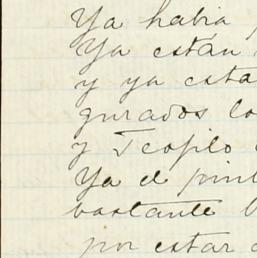 Ya habia
Ya estan
y ya esta
gurados lo
y Teofilo
Ya el pint
bastante
por estar